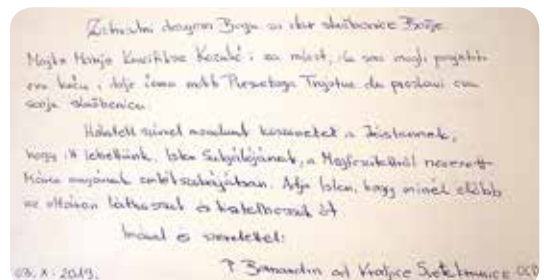 Zahvalni dragom Bogu za dar službenice Božje
Majke Marije Krucifikse Kozulić i za milost, da smo mogli posjetiti
ovu kuću i dalje ćemo moliti Presvetoga Trojstva da proslavi ovu
svoju službenicu.
Hálatelt szívvel mondunk köszönetet a Jóistennek,
hogy itt lehettünk, Isten Szolgálójának, a Megfeszítettről nevezett
Mária anyának emlékszobájában. Adja Isten, hogy minél előbb
az oltáron láthassuk és tisztelhessük őt
Imával és szeretettel:
03. X. 2019. P. Bernardin od Kraljice Svete Krunice OCD